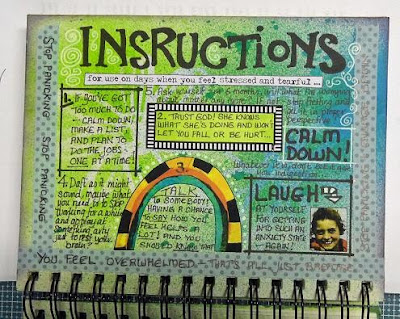 INSRUCTIONS
for use on days when you feel stressed and tearful ...
STOP PANICKING ... STOP PANICKING
1. IF YOU'VE GOT
TOO MUCH TO DO
- CALM DOWN,
MAKE A LIST
AND PLAN TO
DO THE JOBS -
ONE AT A TIME!
5. Ask yourself - in 6 months, will what I'm worrying
about matter any more? If not - stop fretting and
put it in
perspective
2. TRUST GOD! SHE KNOWS
WHAT SHE'S DOING AND WON'T
LET YOU FALL OR BE HURT...
CALM
DOWN!
Whatever
3.
TALK
to SOMEBODY!
HAVING A CHANCE
TO SAY HOW YOU
FEEL HELPS A
LOT! AND YOU
SHOULD KNOW THAT
4. Daft as it might
sound, maybe what
you need is to stop
working for a while
and go and do
something arty
just to rest your
brain?
LAUGH
AT YOURSELF
FOR GETTING
INTO SUCH AN
ANXIETY STATE
AGAIN!
YOU FEEL OVERWHELMED - THAT'S ALL, JUST